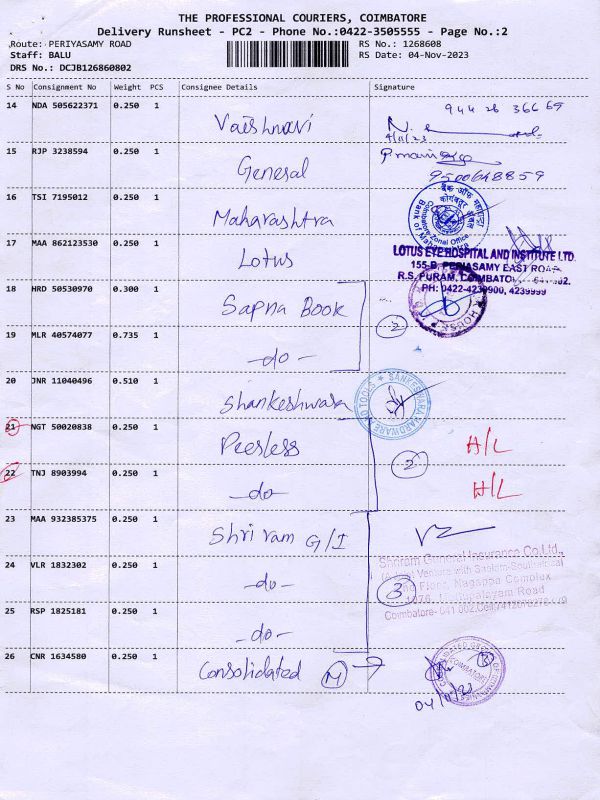 THE PROFESSIONAL COURIERS, COIMBATORE
Delivery Runsheet - PC2 - Phone No.:0422-3505555 - Page No.:2
Route: PERIYASAMY ROAD RS No.: 1268608
Staff: BALU RS Date: 04-Nov-2023
DRS No.: DCJB126860802
S No Consignment No Weight PCS Consignee Details Signature
14 NDA 505622371 0.250 1 Vaishnavi
4/11/23
15 RJP 3238594 0.250 1 General
9500648859
16 TSI 7195012 0.250 1 Maharashtra
बैंक ऑफ महाराष्ट्र
Zonal Office
17 MAA 862123530 0.250 1 Lotus
LOTUS EYE HOSPITAL AND INSTITUTE LTD.
155-B, PERIASAMY EAST ROAD
R.S. PURAM, COIMBATORE
PH: 0422-4239900, 4239999
18 HRD 50530970 0.300 1 Sapna Book
2
19 MLR 40574077 0.735 1 -do-
20 JNR 11040496 0.510 1 Shankeshwara
SANKESHWARA HARDWARE AND TOOLS
21 NGT 50020838 0.250 1 Peerless H/L
2
22 TNJ 8903994 0.250 1 -do- H/L
23 MAA 932385375 0.250 1 Shri ram G/I
Shriram General Insurance Co.Ltd.,
24 VLR 1832302 0.250 1 -do-
Floor, Nagappa Complex
3
Road
Coimbatore- 641 002.
25 RSP 1825181 0.250 1 -do-
26 CNR 1634580 0.250 1 Consolidated M
COIMBATORE
04/11/23